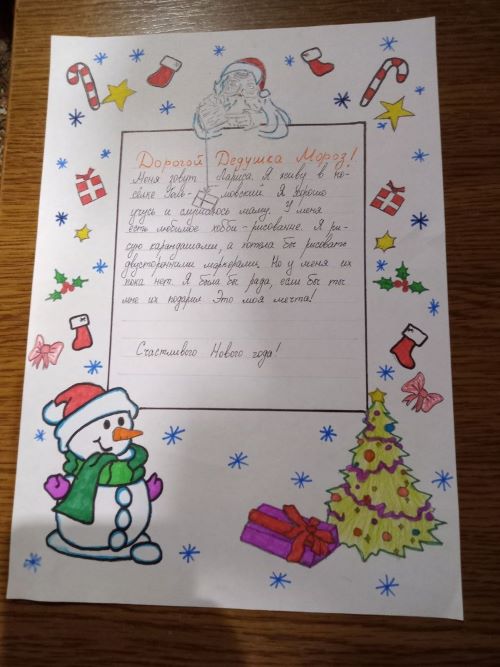 Дорогой Дедушка Мороз!
Меня зовут Лариса. Я живу в по-
сёлке Усть- Я хорошо
учусь и слушаюсь маму. У меня
есть любимое хобби - рисование. Я ри-
сую карандашами, а хотела бы рисовать
двусторонними маркерами. Но у меня их
пока нет. Я была бы рада, если бы ты
мне их подарил Это моя мечта!
Счастливого Нового года!